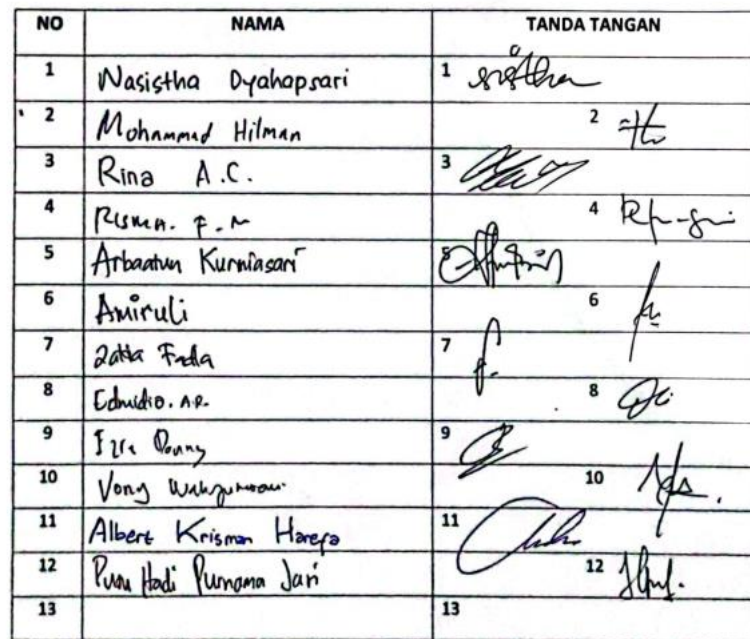 NO NAMA TANDA TANGAN
1 Wasistha Dyahapsari 1
2 Mohammad Hilman 2
3 Rina A.C. 3
4 Risma. F. M 4
5 Arbaatun Kurniasari 5
6 Amiruli 6
7 Zakka Fada 7
8 Edmidio. A.R. 8
9 Donny 9
10 Vony 10
11 Albert Krisman Harefa 11
12 Hadi Purnama Jari 12
13 13